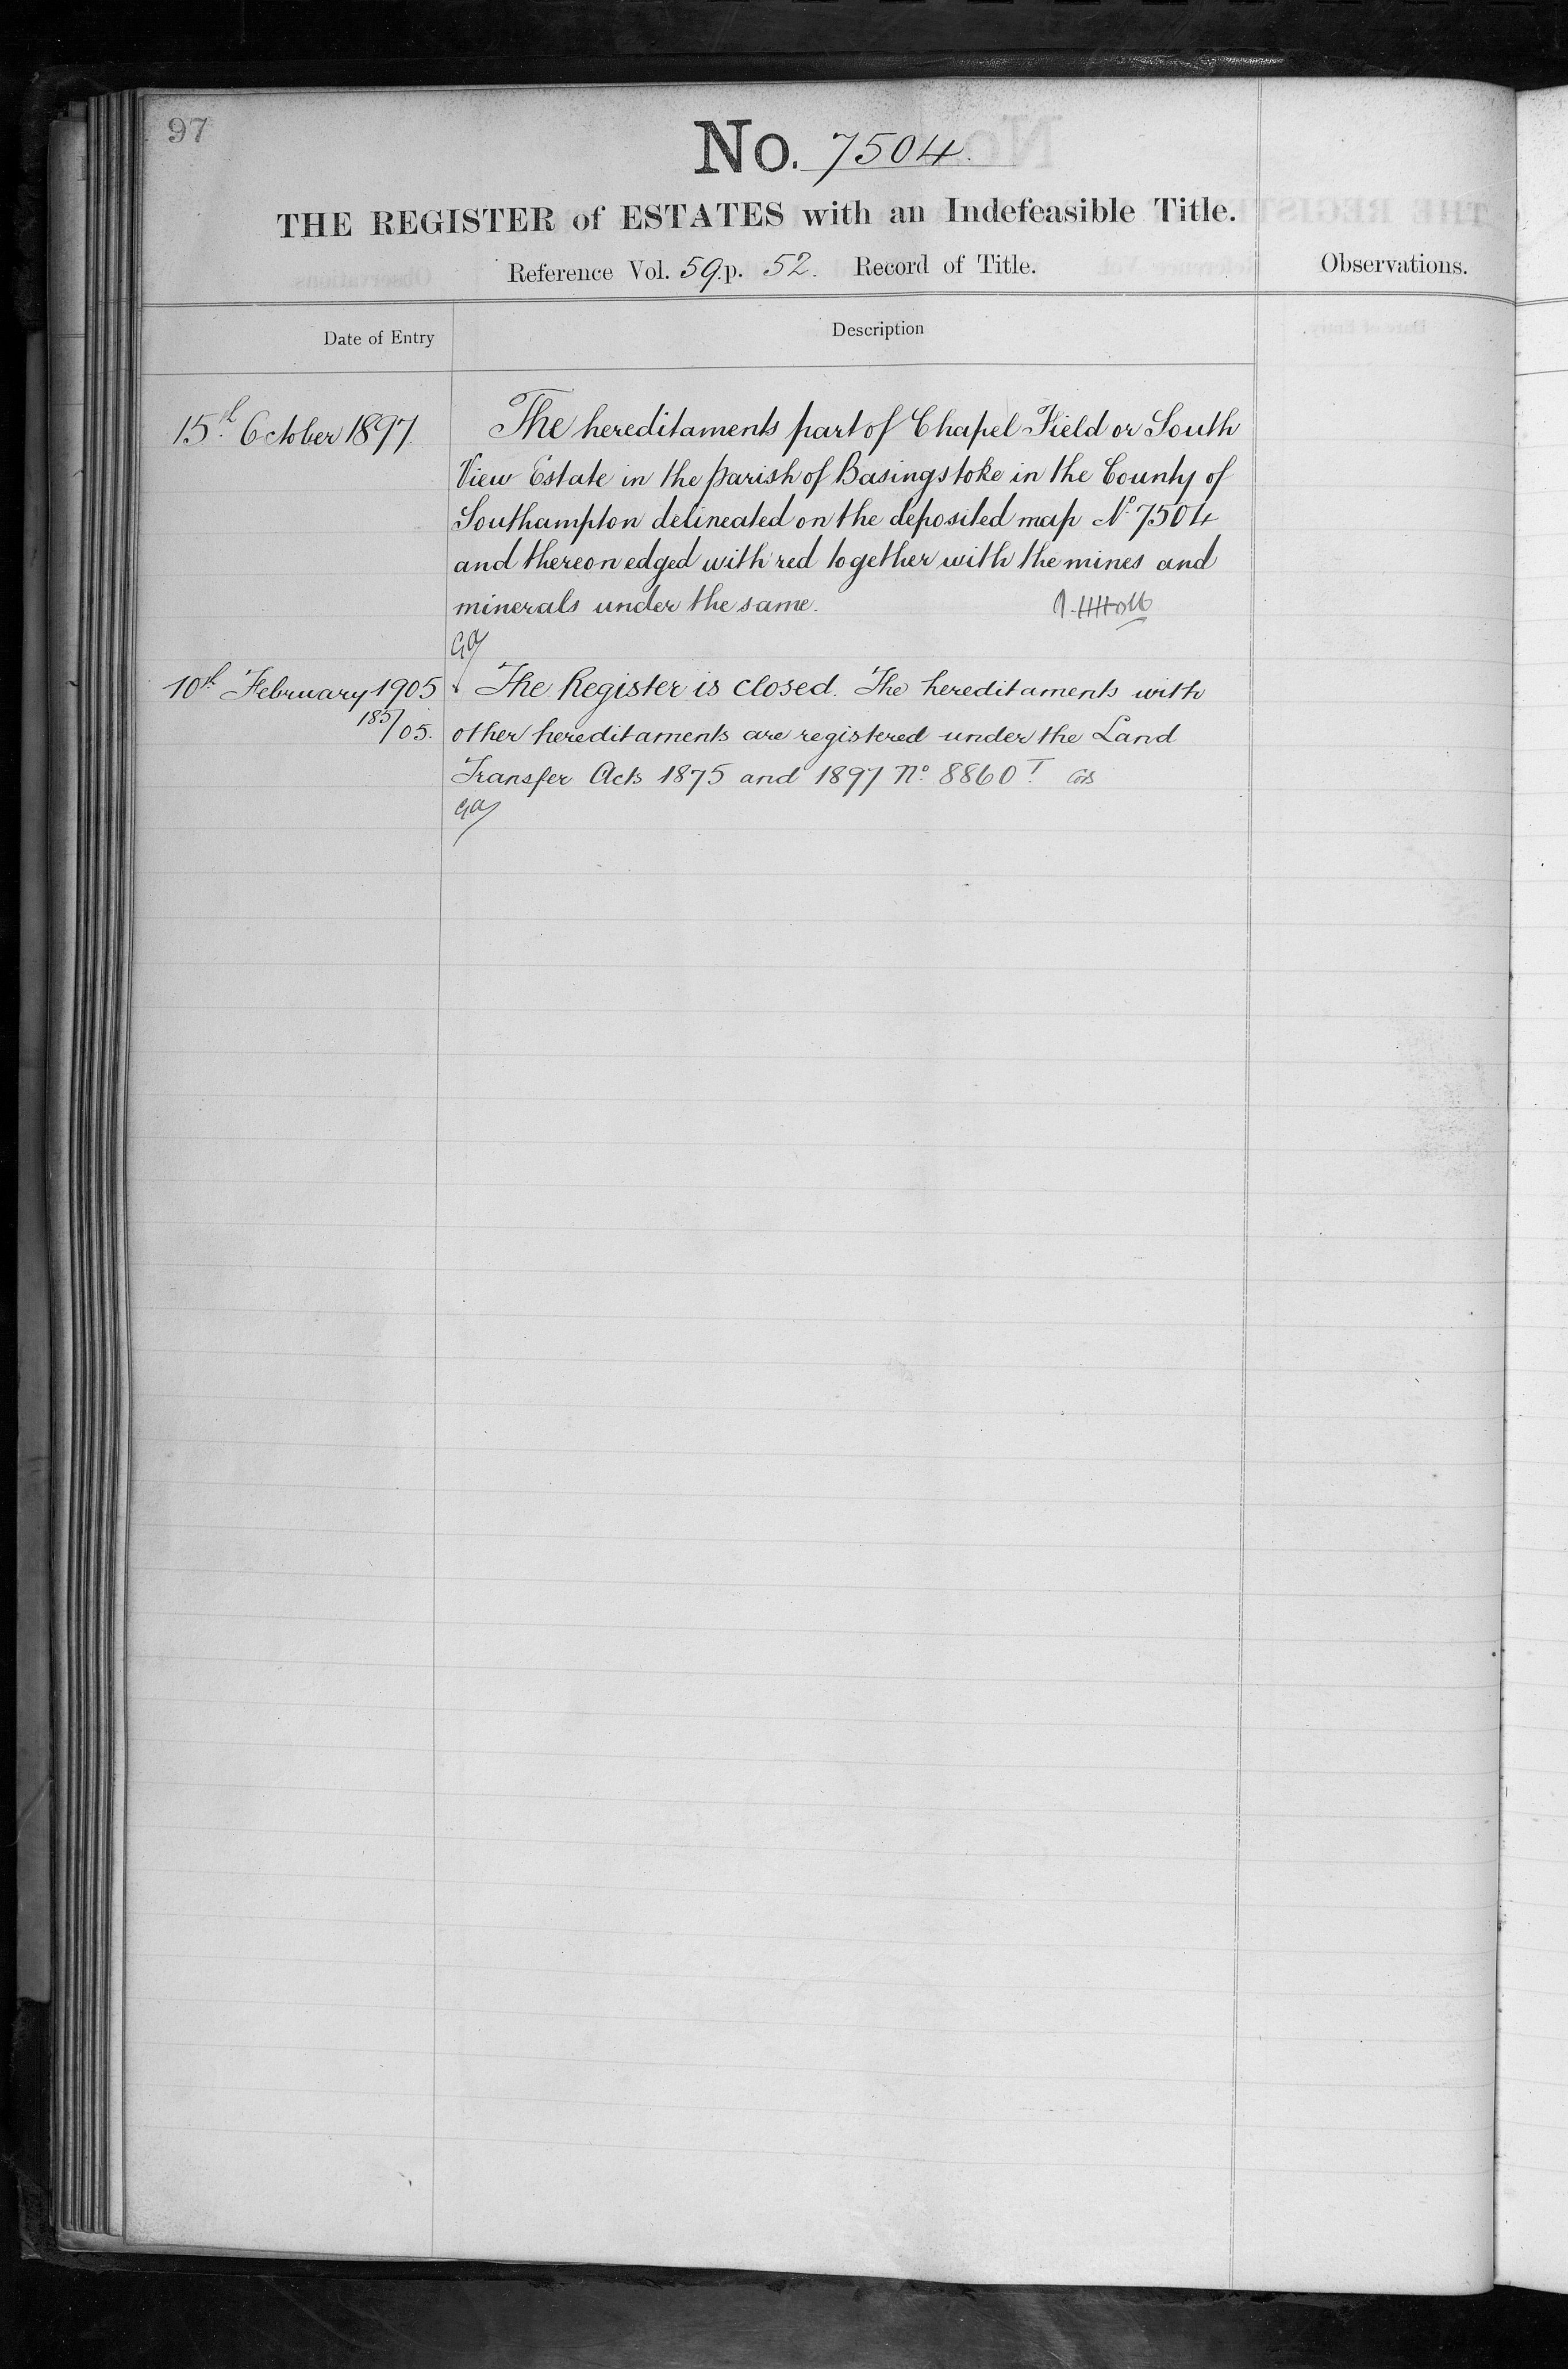 97
No. 7504.
THE REGISTER of ESTATES with an Indefeasible Title.
Reference Vol. 59. p. 52. Record of Title.
Observations.
Date of Entry
Description
15th October 1897.
The hereditaments part of Chapel Field or South
View Estate in the parish of Basingstoke in the County of
Southampton delineated on the deposited map No. 7504
and thereon edged with red together with the mines and
minerals under the same.
10th February 1905
185/05.
The Register is closed. The hereditaments with
other hereditaments are registered under the Land
Transfer Acts 1875 and 1897 No. 8860 T